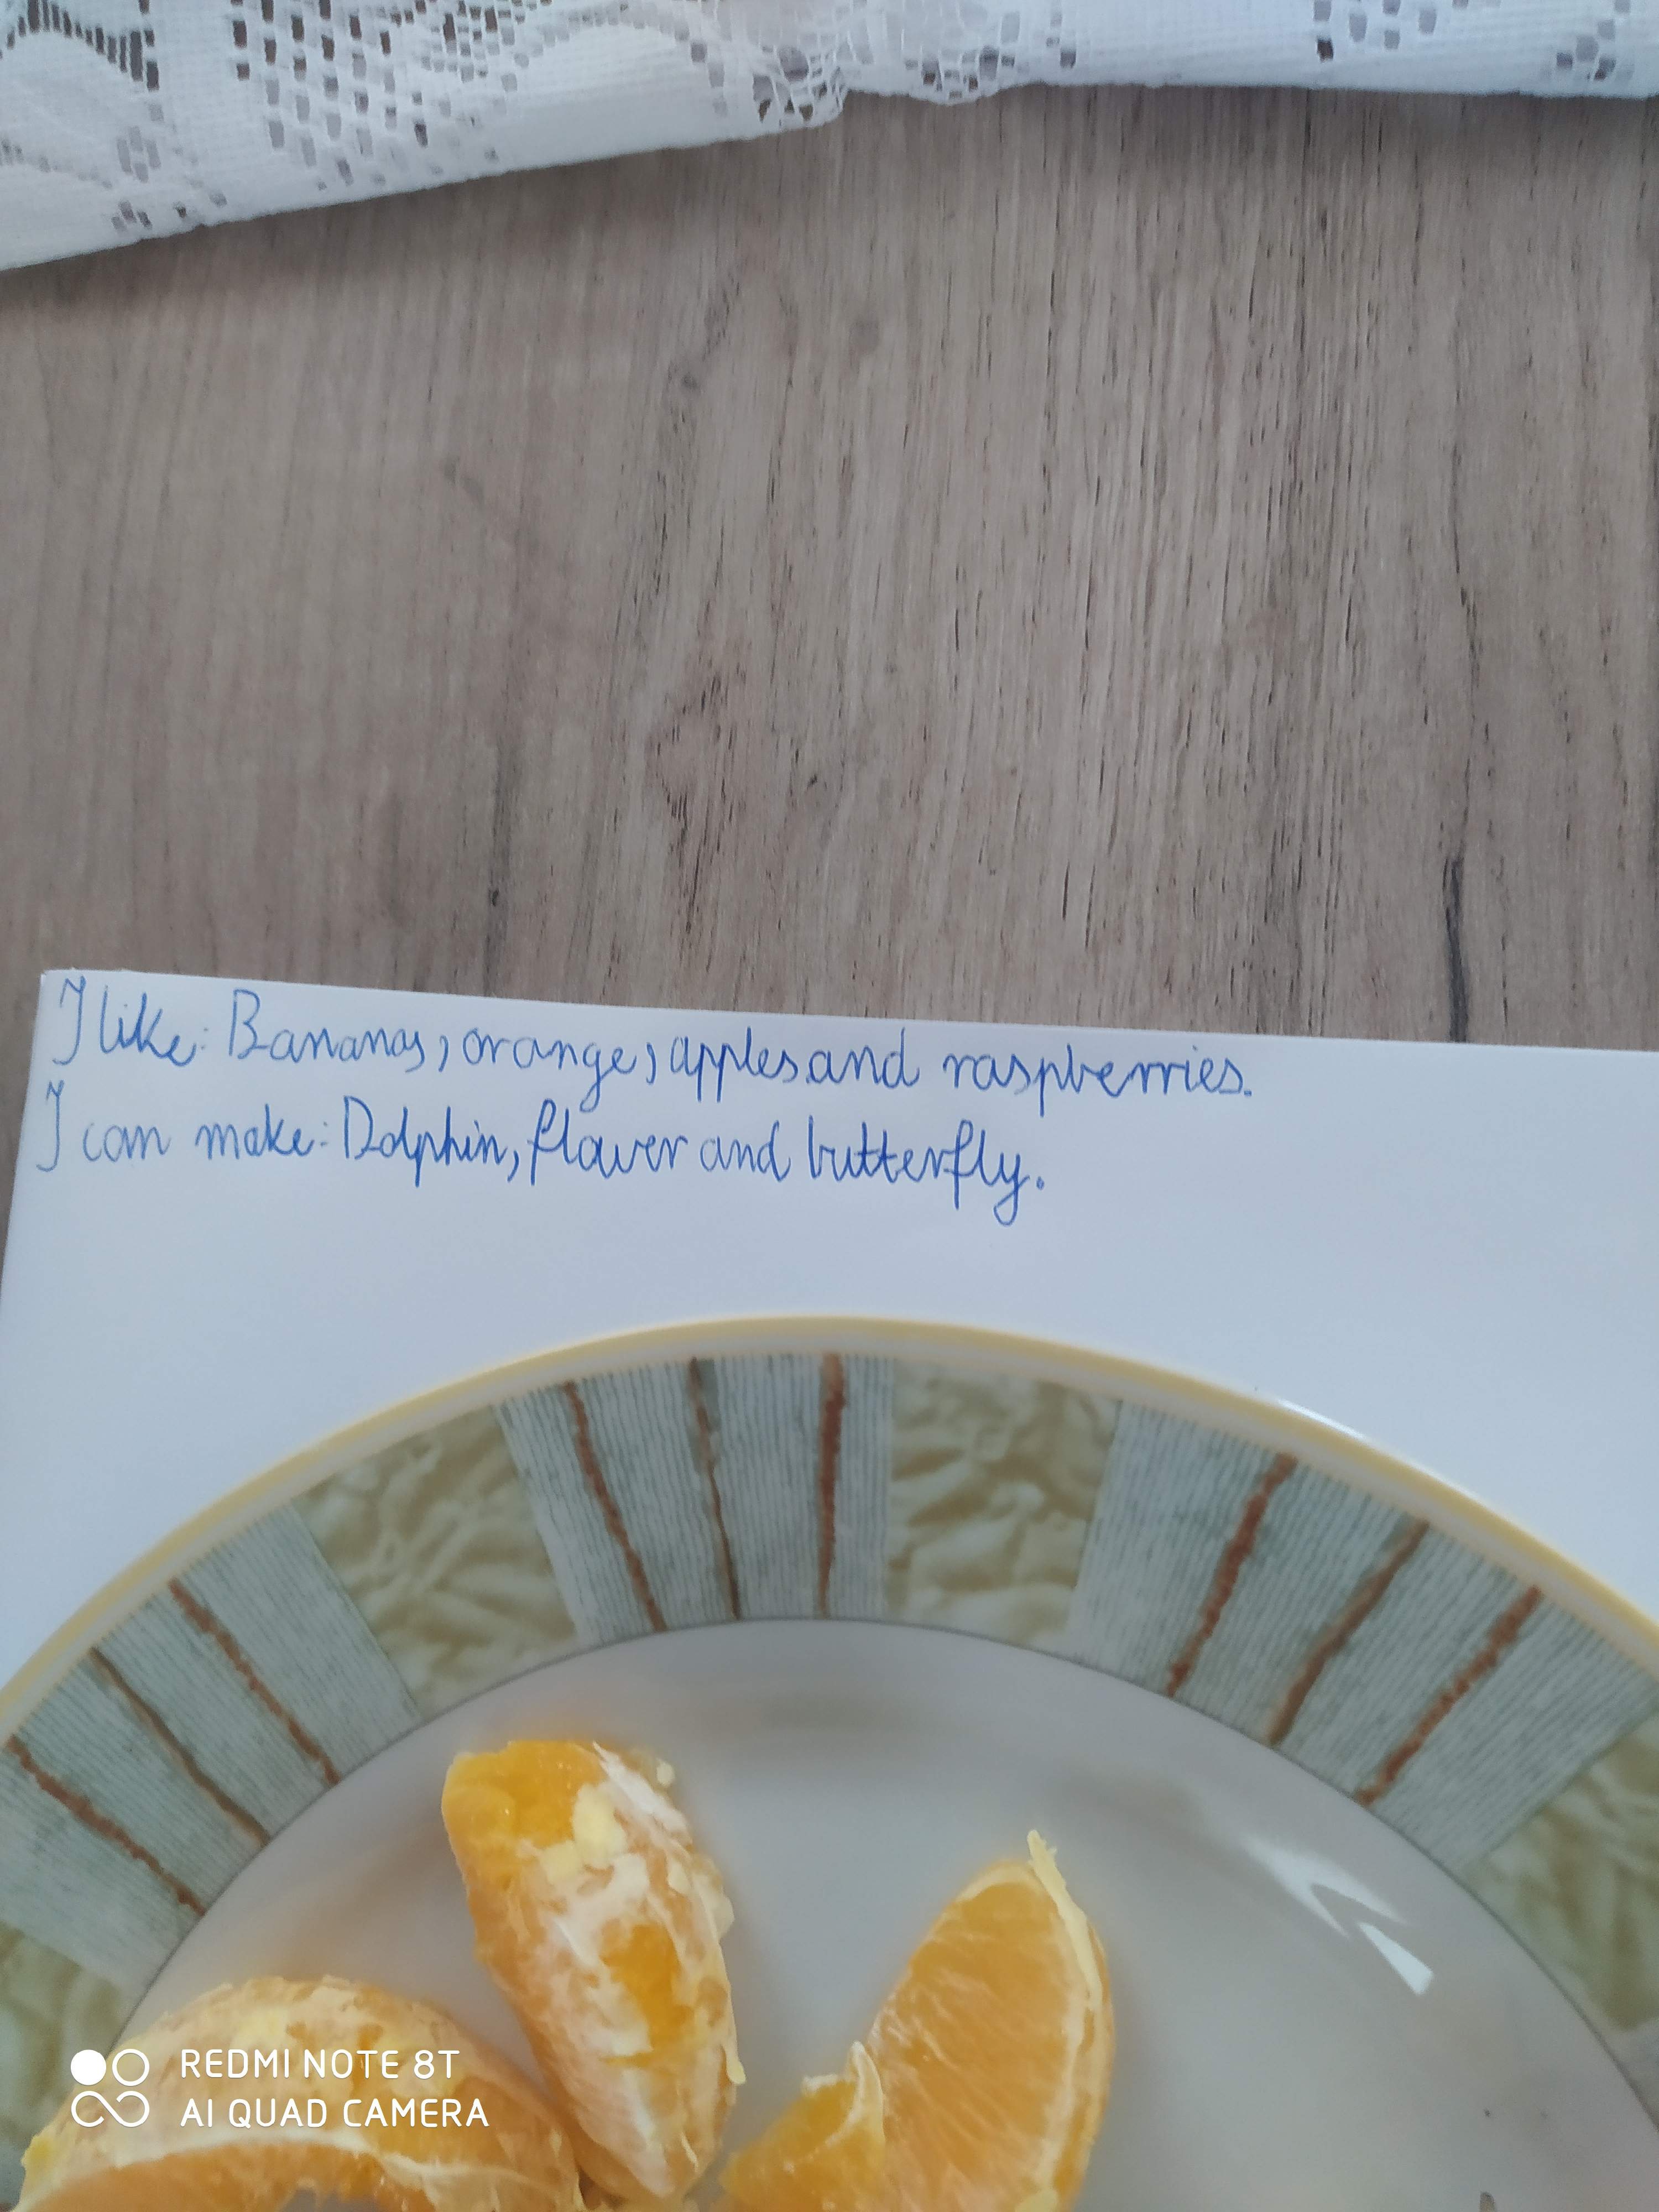 I like: Bananas, orange, apples and raspberries.
I can make: Dolphin, flower and butterfly.
REDMI NOTE 8T
AI QUAD CAMERA